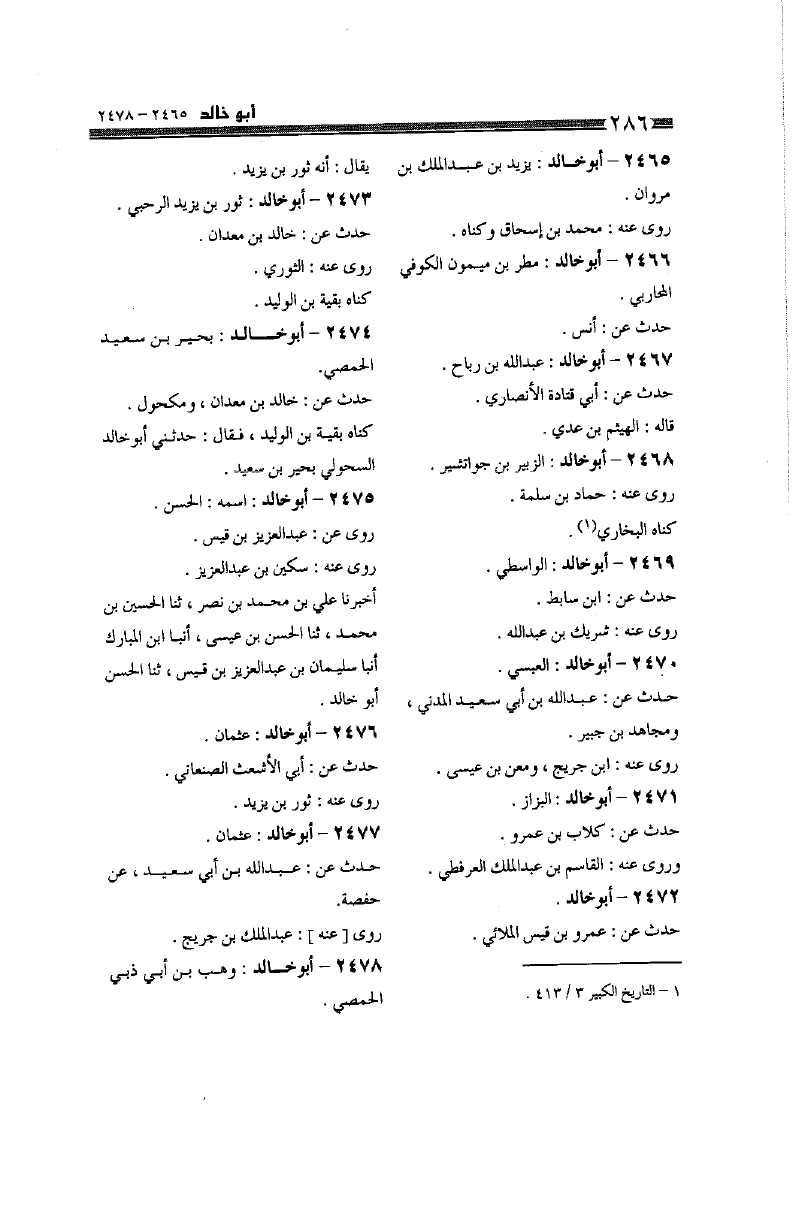 ٢٨٦
أبو خالد ٢٤٦٥ – ٢٤٧٨
٢٤٦٥ – أبو خالد : يزيد بن عبدالملك بن
مروان .
روى عنه : محمد بن إسحاق وكناه .
٢٤٦٦ – أبو خالد : مطر بن ميمون الكوفي
المحاربي .
حدث عن : أنس .
٢٤٦٧ – أبو خالد : عبدالله بن رباح .
حدث عن : أبي قتادة الأنصاري .
قاله : الهيثم بن عدي .
٢٤٦٨ – أبو خالد : الزبير بن جواتشير .
روى عنه : حماد بن سلمة .
كناه البخاري(١) .
٢٤٦٩ – أبو خالد : الواسطي .
حدث عن : ابن سابط .
روى عنه : شريك بن عبدالله .
٢٤٧٠ – أبو خالد : العبسي .
حدث عن : عبدالله بن أبي سعيد المدني ،
ومجاهد بن جبير .
روى عنه : ابن جريج ، ومعن بن عيسى .
٢٤٧١ – أبو خالد : البزاز .
حدث عن : كلاب بن عمرو .
وروى عنه : القاسم بن عبدالملك العرفطي .
٢٤٧٢ – أبو خالد .
حدث عن : عمرو بن قيس الملائي .
١ – التاريخ الكبير ٣ / ٤١٣ .
يقال : أنه ثور بن يزيد .
٢٤٧٣ – أبو خالد : ثور بن يزيد الرحبي .
حدث عن : خالد بن معدان .
روى عنه : الثوري .
كناه بقية بن الوليد .
٢٤٧٤ – أبو خالد : بحير بن سعيد
الحمصي.
حدث عن : خالد بن معدان ، ومكحول .
كناه بقية بن الوليد ، فقال : حدثني أبو خالد
السحولي بحير بن سعيد .
٢٤٧٥ – أبو خالد : اسمه : الحسن .
روى عن : عبدالعزيز بن قيس .
روى عنه : سكين بن عبدالعزيز .
أخبرنا علي بن محمد بن نصر ، ثنا الحسين بن
محمد ، ثنا الحسن بن عيسى ، أنبا ابن المبارك
أنبا سليمان بن عبدالعزيز بن قيس ، ثنا الحسن
أبو خالد .
٢٤٧٦ – أبو خالد : عثمان .
حدث عن : أبي الأشعث الصنعاني .
روى عنه : ثور بن يزيد .
٢٤٧٧ – أبو خالد : عثمان .
حدث عن : عبدالله بن أبي سعيد ، عن
حفصة.
روى [ عنه ] : عبدالملك بن جريج .
٢٤٧٨ – أبو خالد : وهب بن أبي ذبي
الحمصي .